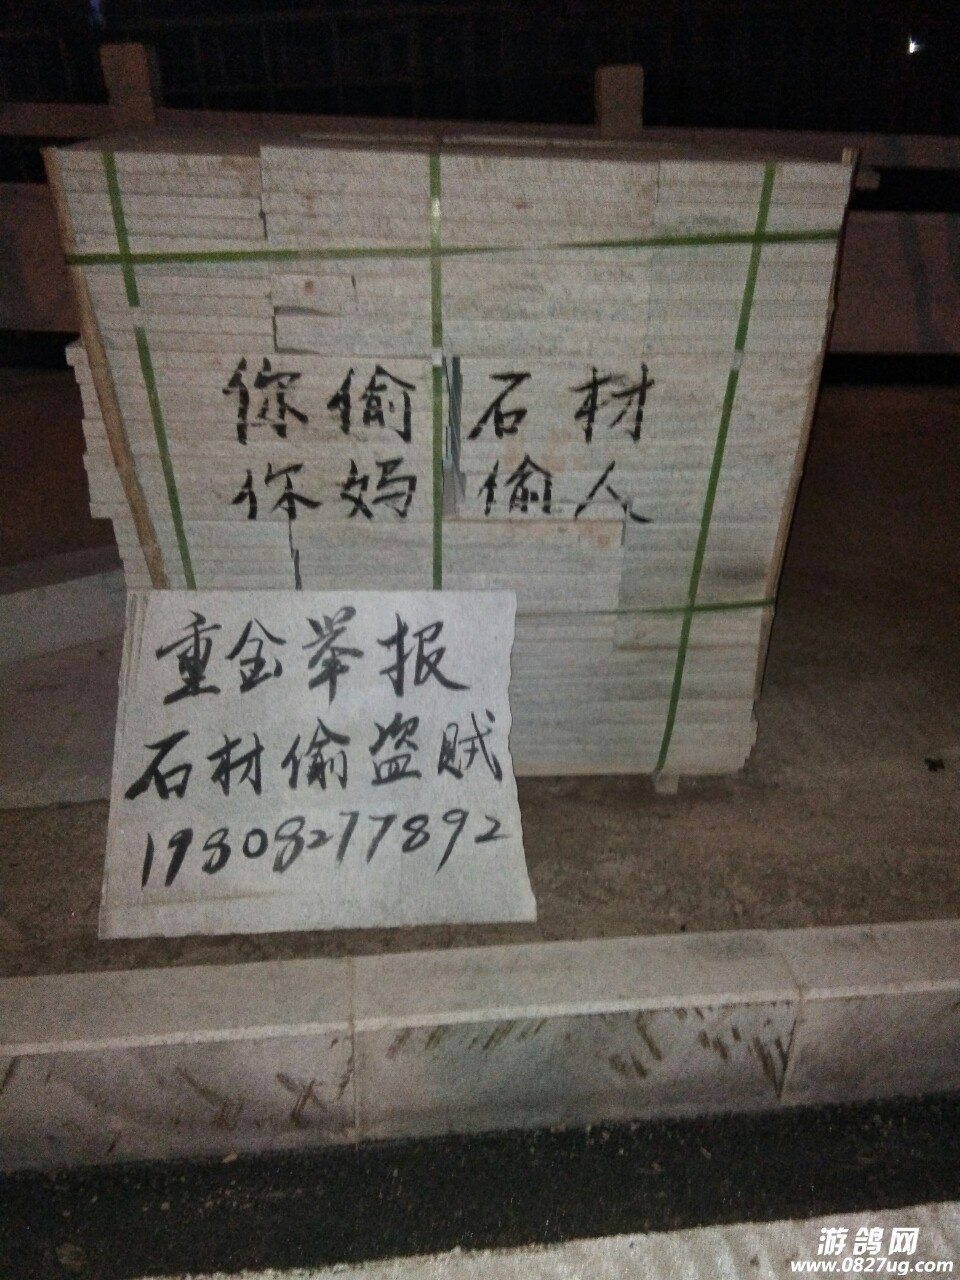 你偷石材
你妈偷人
重金举报
石材偷盗贼
19808277892
游鸽网
www.0827ug.com